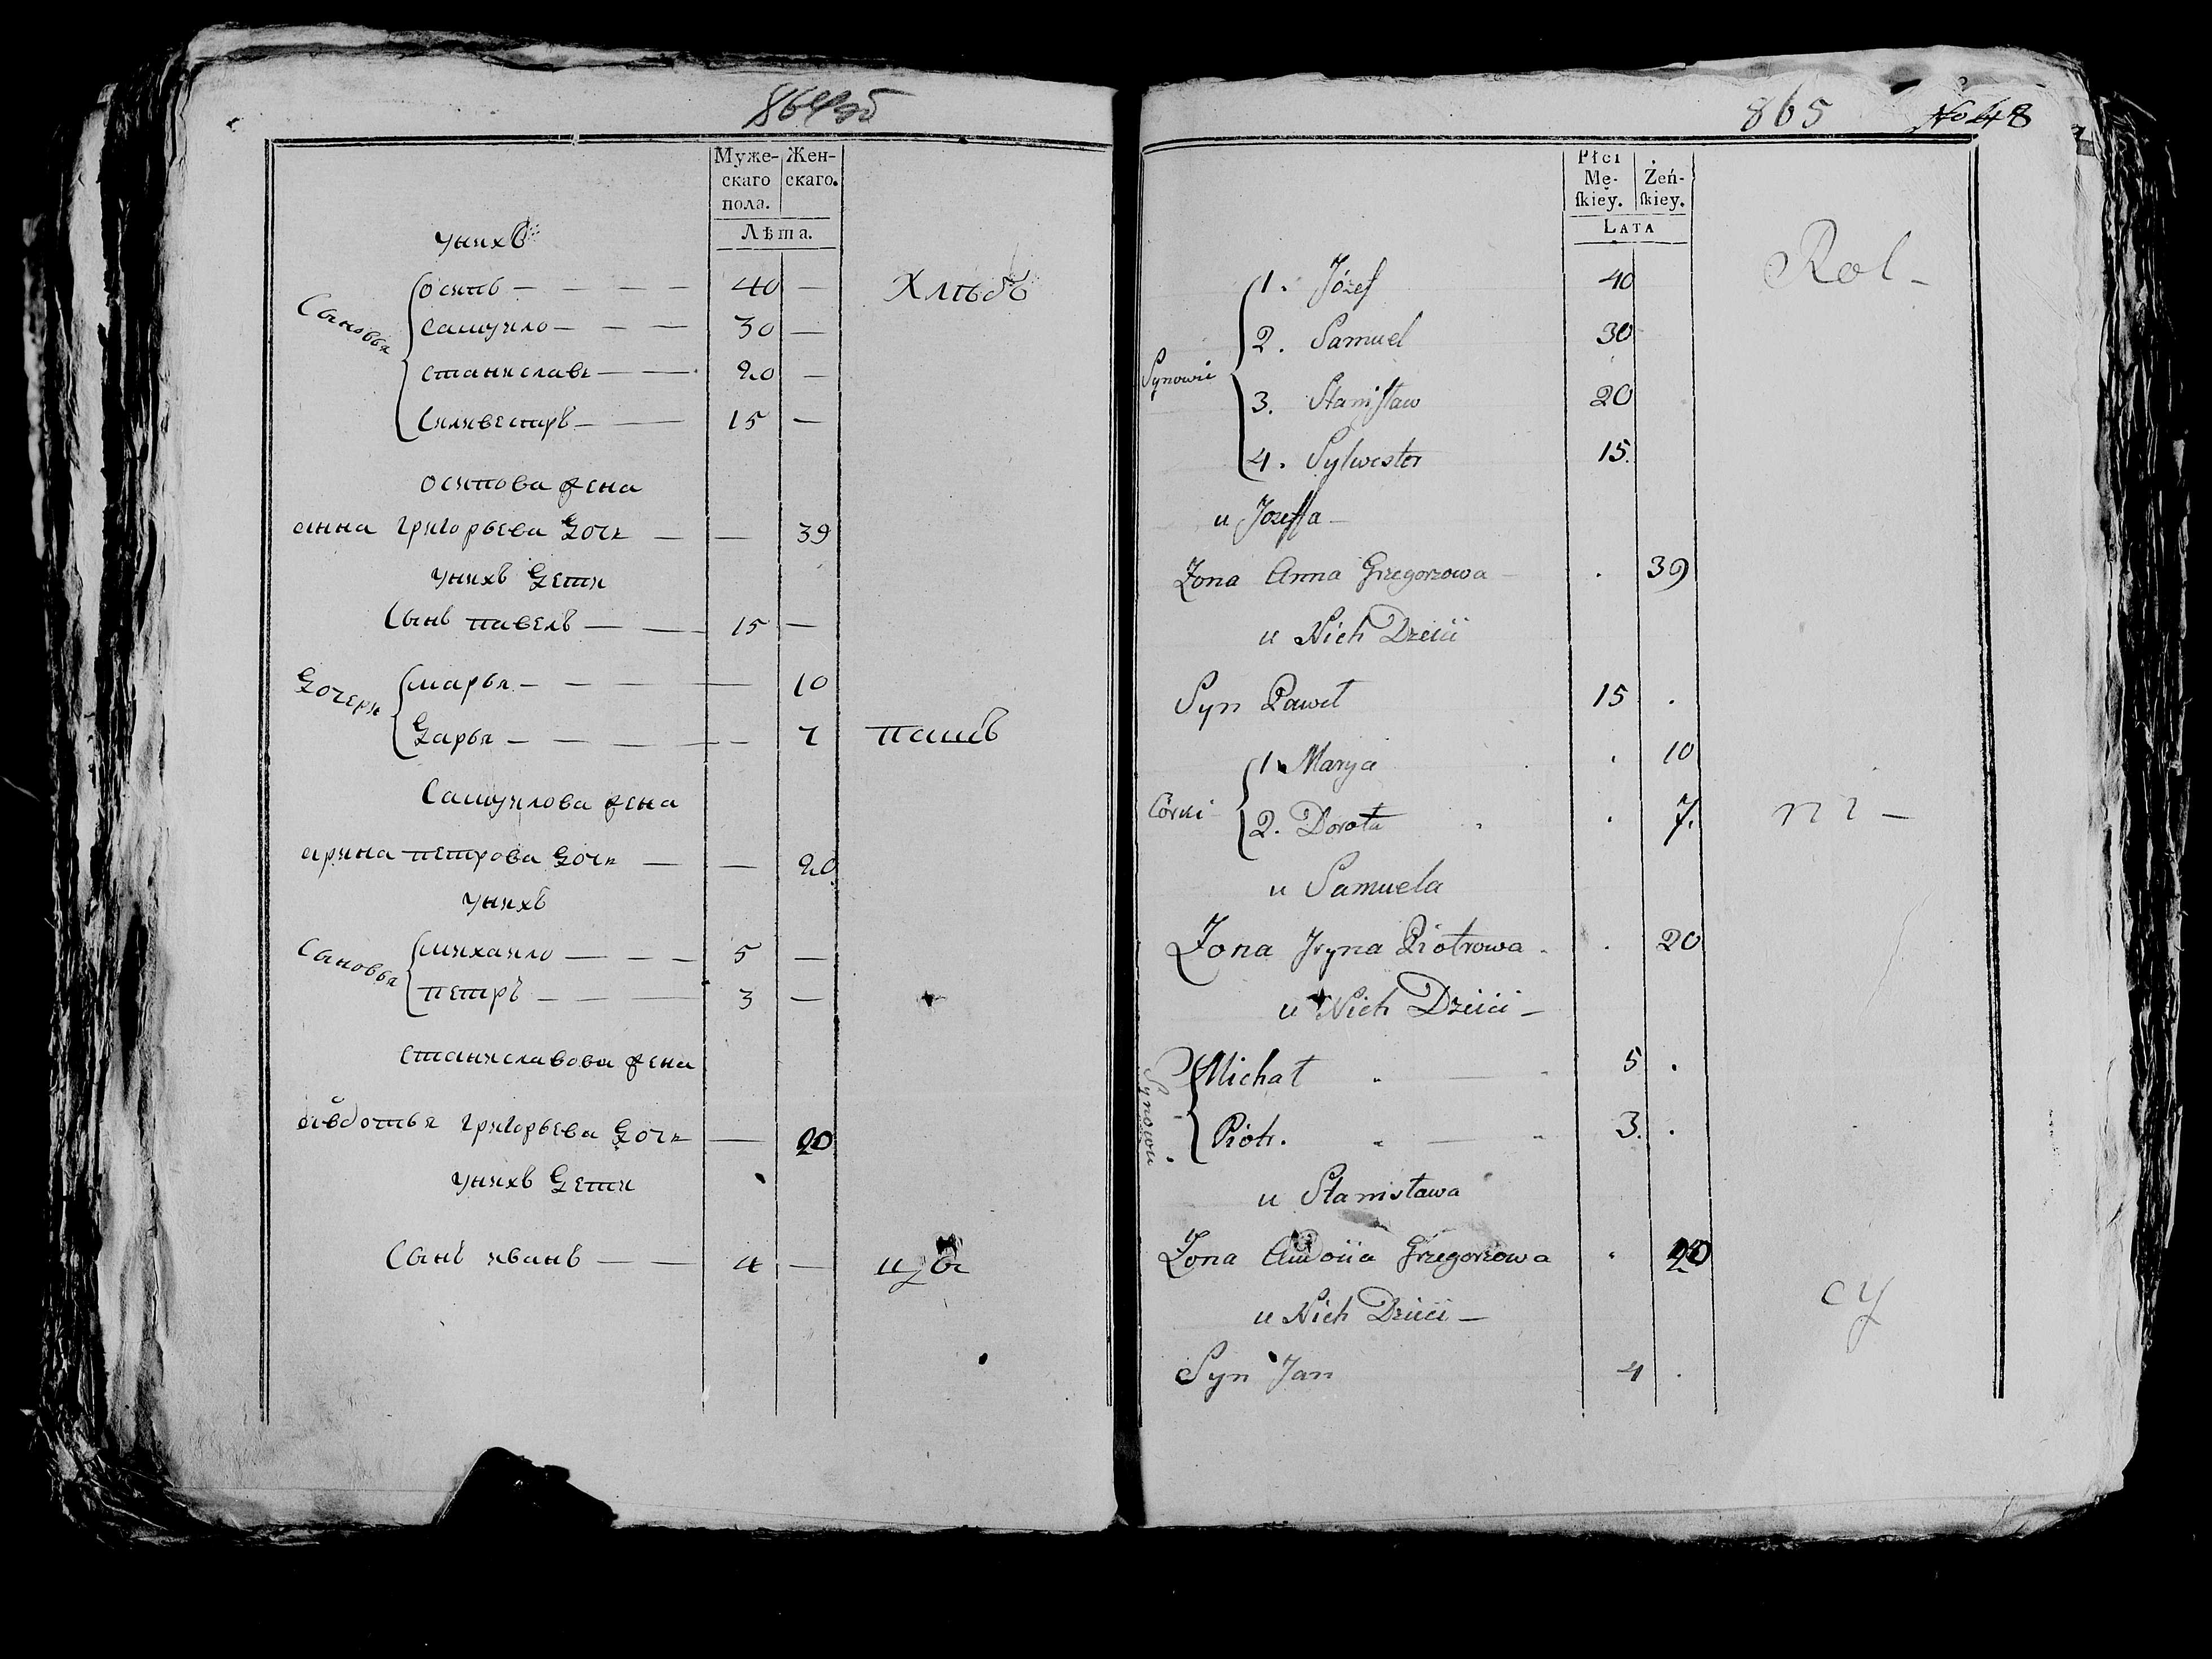 864 об
Муже-скаго пола. Жен-скаго.
Лѣта.
у нихъ
Сыновья
осипъ — — — — 40 — Хлѣбо
самуило — — — 30 —
станиславъ — — 20 —
Силивестръ — — 15 —
осипова жена
анна григорьева дочь — — 39
у нихъ дети
Сынъ павелъ — — 15 —
дочери
марья — — — — 10
дарья — — — — — 7 пашъ
Самуилова жена
арина петрова дочь — — 20
у нихъ
Сыновья
михаило — — — 5 —
петръ — — — 3 —
станиславова жена
авдотья григорьева дочь — 20
у нихъ дети
Сынъ иванъ — — 4 — цы
865 No 48
Płci Mę-skiey. Żeń-skiey.
LATA
Synowie
1. Józef 40 Rol-
2. Samuel 30
3. Stanisław 20
4. Sylwester 15.
u Jozeffa —
Zona Anna Grzegorzowa — . 39
u Nich Dzieci
Syn Paweł 15 .
Córki
1. Marya . 10
2. Dorota . 7. ni —
u Samuela
Zona Iryna Piotrowa - . 20
u Nich Dzieci —
Synowie
Michał 5 .
Piotr. 3. .
u Stanisława
Zona Awdocia Grzegorzowa . 20
u Nich Dzieci — cy
Syn Jan 4 .